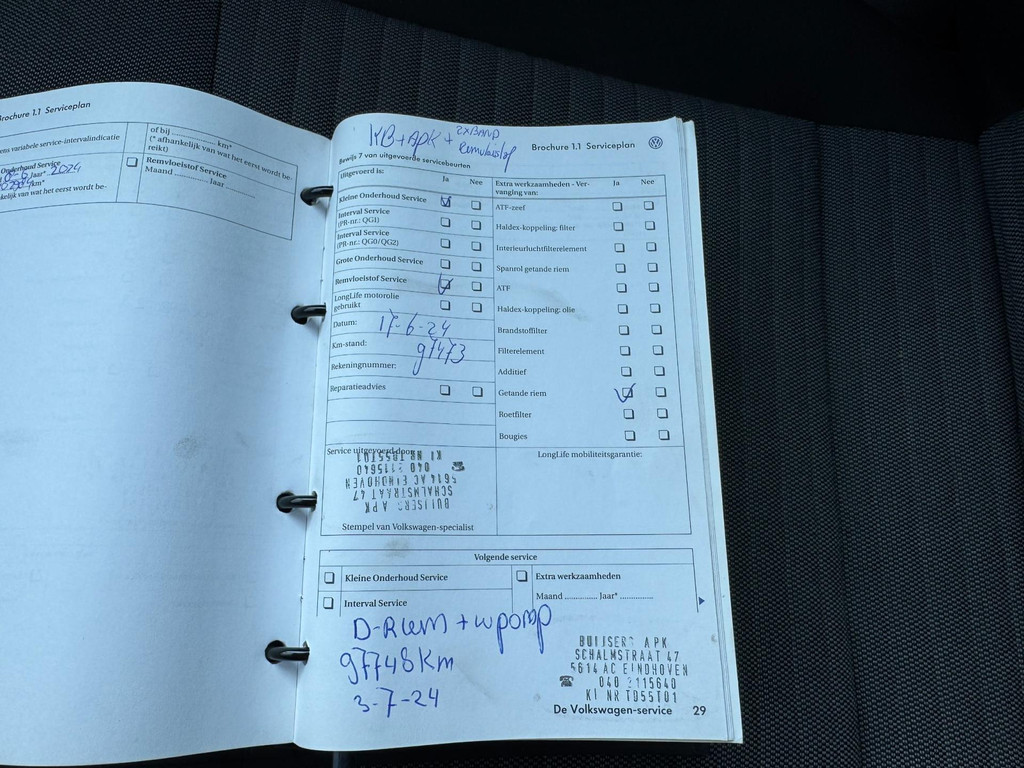 Brochure 1.1 Serviceplan
ens variabele service-intervalindicatie
Onderhoud Service
Jaar* 2024
km*
kelijk van wat het eerst wordt be-
of bij .................. km*
(* afhankelijk van wat het eerst wordt be-
reikt)
Remvloeistof Service
Maand ............... Jaar ...............
KB+APK +
Remvloeistof
Brochure 1.1 Serviceplan
Bewijs 7 van uitgevoerde servicebeurten
Uitgevoerd is:
Ja Nee
Kleine Onderhoud Service
Interval Service
(PR-nr.: QG1)
Interval Service
(PR-nr.: QG0/QG2)
Grote Onderhoud Service
Remvloeistof Service
LongLife motorolie
gebruikt
Datum: 17-6-24
Km-stand: 97473
Rekeningnummer:
Reparatieadvies
Extra werkzaamheden - Ver-
vanging van:
Ja Nee
ATF-zeef
Haldex-koppeling: filter
Interieurluchtfilterelement
Spanrol getande riem
ATF
Haldex-koppeling: olie
Brandstoffilter
Filterelement
Additief
Getande riem
Roetfilter
Bougies
Service uitgevoerd door:
BUIJSERS APK
SCHALMSTRAAT 47
5614 AC EINDHOVEN
☎ 040 2115640
KI NR TD55T01
Stempel van Volkswagen-specialist
LongLife mobiliteitsgarantie:
Volgende service
Kleine Onderhoud Service
Interval Service
Extra werkzaamheden
Maand ............... Jaar* ...............
D-Riem + wpomp
97748 Km
3-7-24
BUIJSERS APK
SCHALMSTRAAT 47
5614 AC EINDHOVEN
☎ 040 2115640
KI NR TD55T01
De Volkswagen-service 29